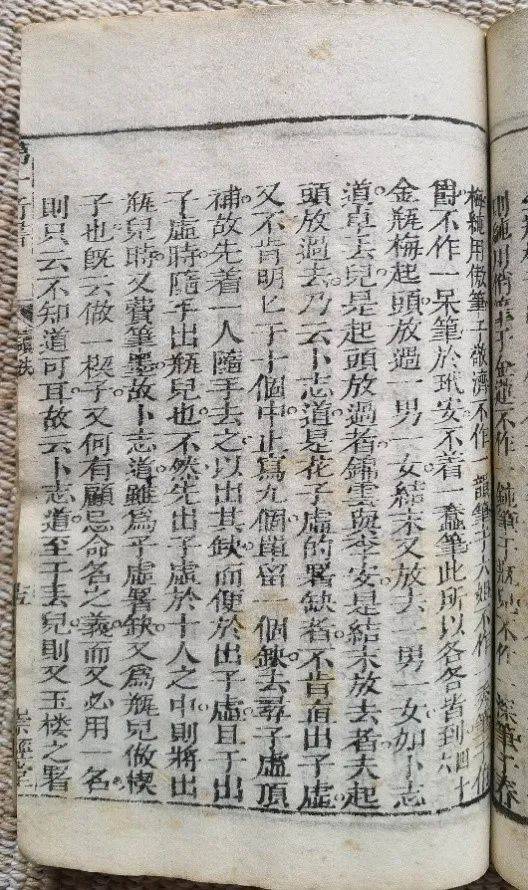 則純用俏筆于金蓮不作一鈍筆于瓶兒不作一深筆于春
梅純用傲筆于敬濟不作一韻筆于大姐不作一秀筆于伯
爵不作一呆筆於玳安不着一蠢筆此所以各各皆到 四十六
金瓶梅起頭放過一男一女結末又放去一男一女如卜志
道卓丟兒是起頭放過者錦雲與李安是結末放去者夫起
頭放過去乃云卜志道是花子虛的署缺者不肯直出子虛
又不肯明匕于十個中止寫九個單留一個缺去尋子虛頂
補故先着一人隨手去之以出其缺而便於出子虛且于出
子虛時隨手出瓶兒也不然先出子虛於十人之中則將出
瓶兒時又費筆墨故卜志道雖爲子虛署缺又爲瓶兒做楔
子也既云做一楔子又何有顧忌命名之義而又必用一名
則只云不知道可耳故云卜志道至于丟兒則又玉楼之署
第一奇書
讀法
崇經堂